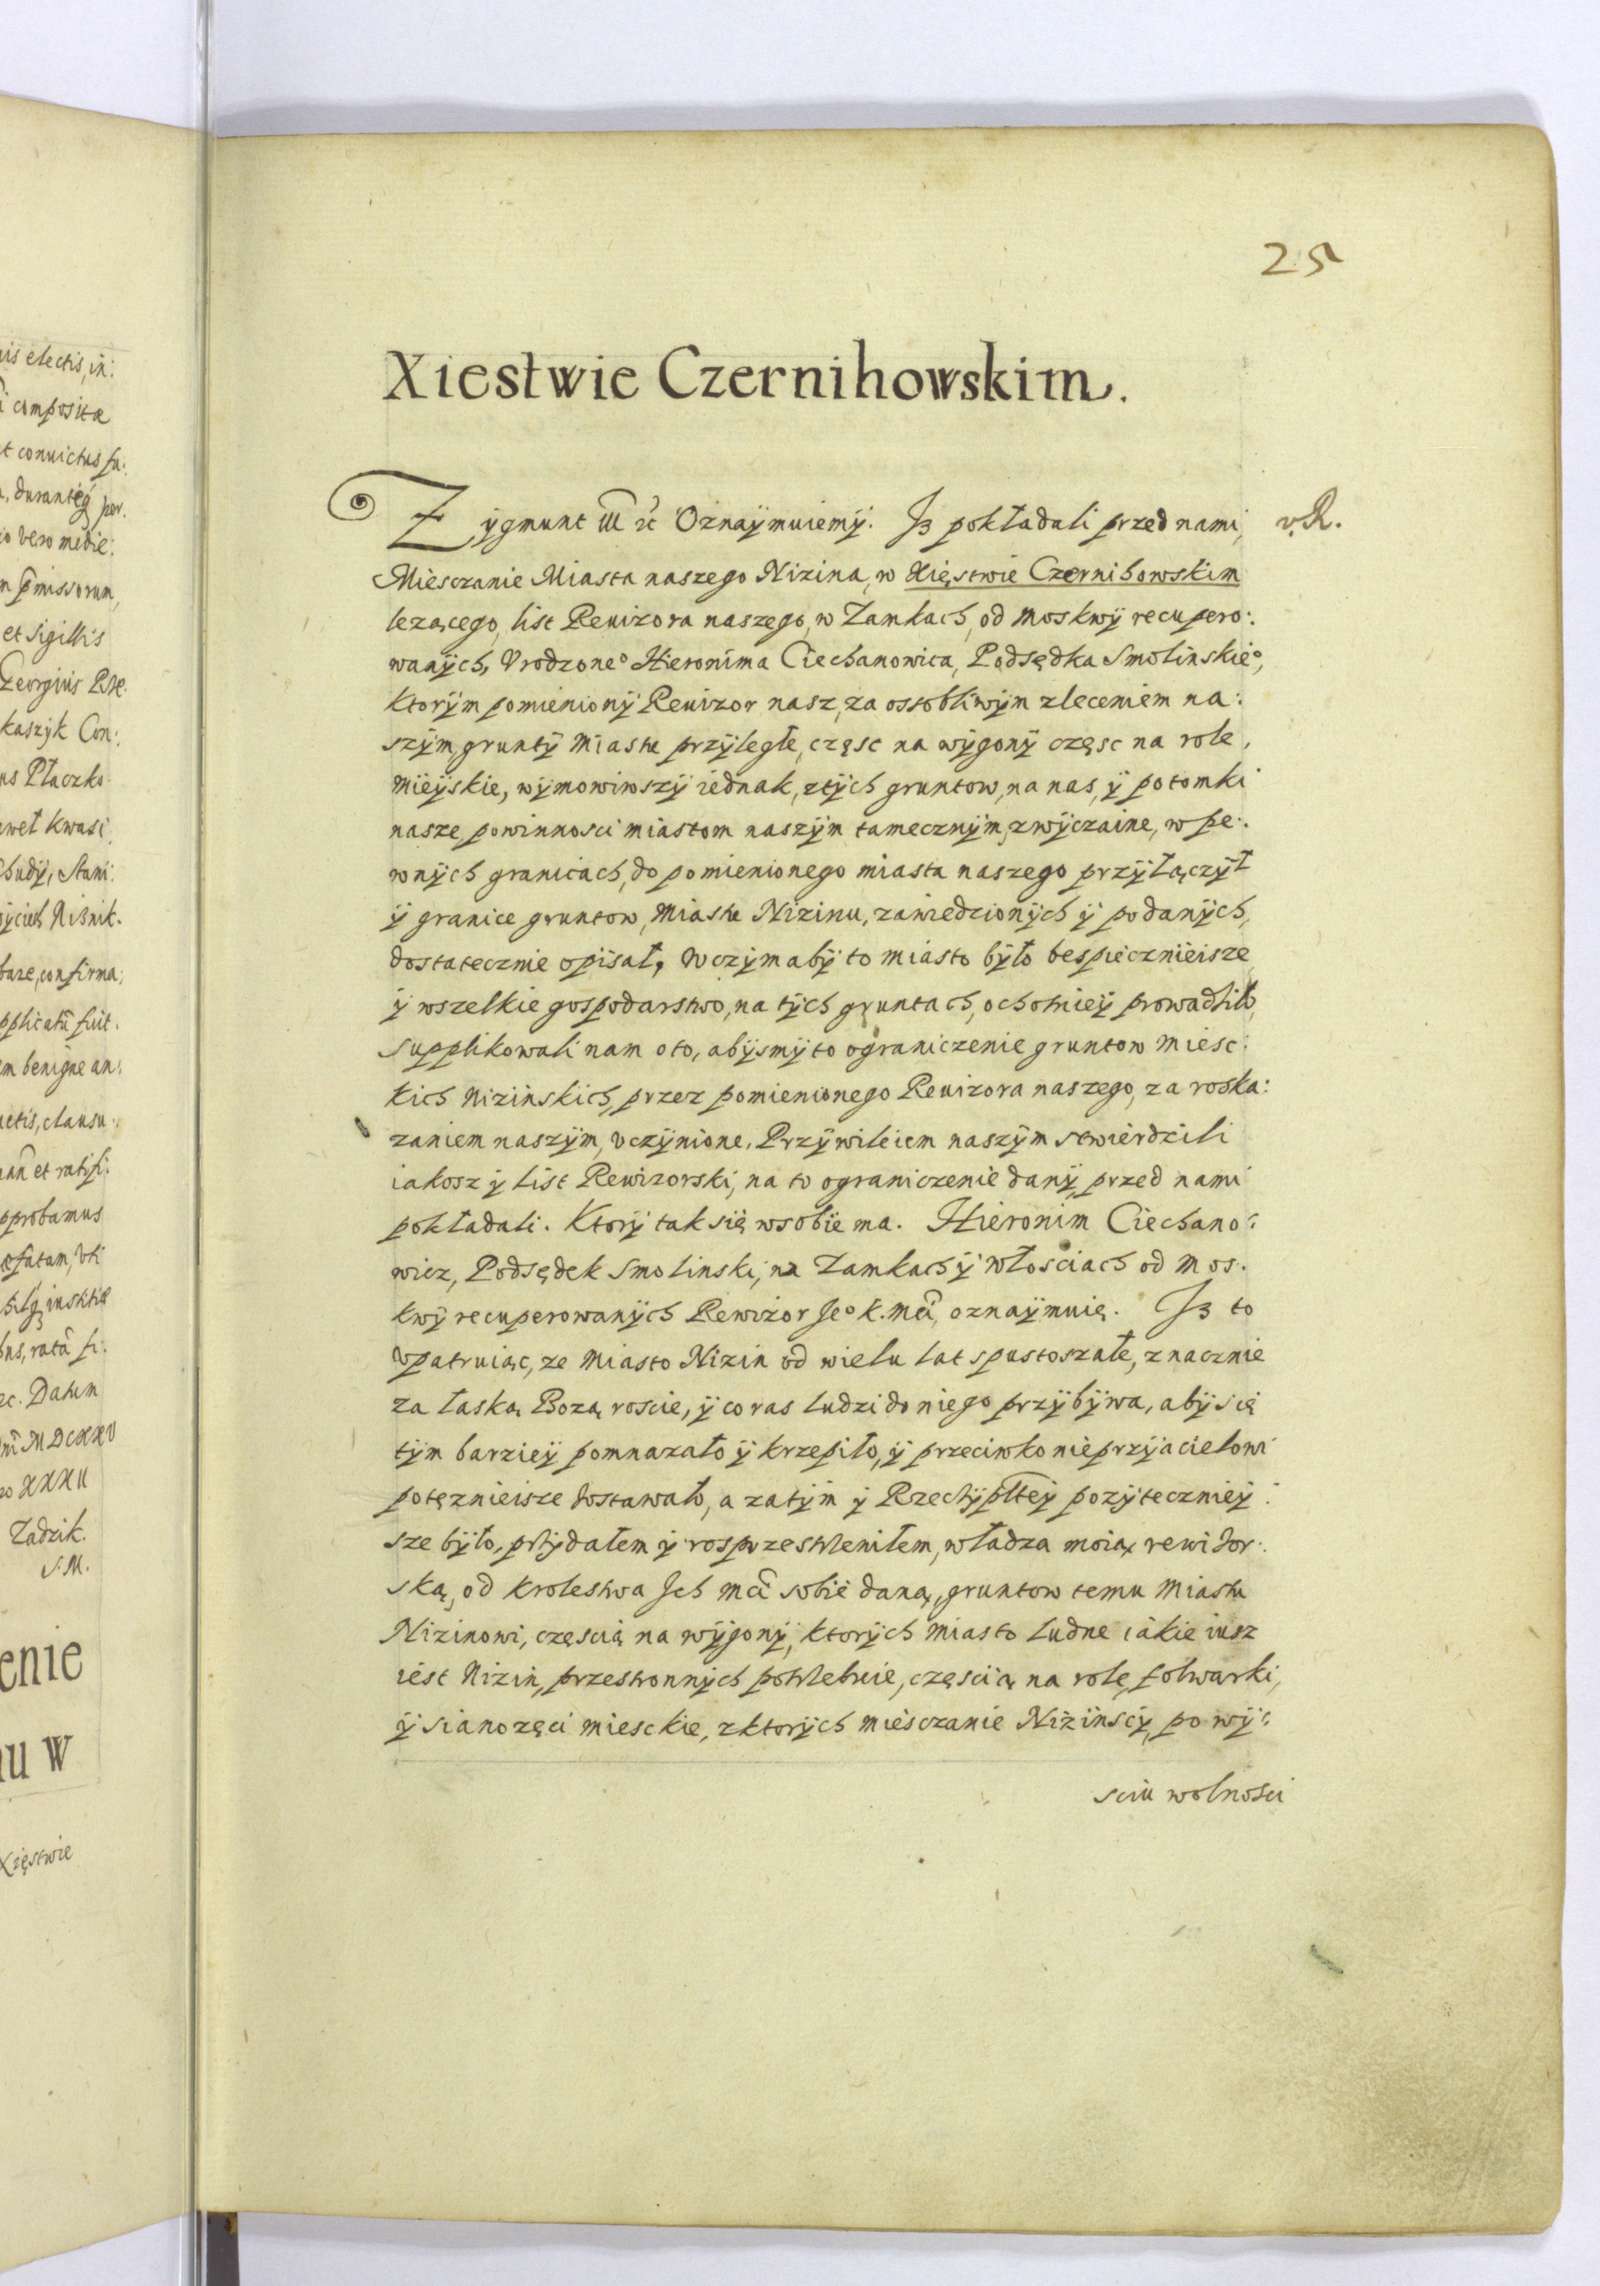 25
Xiestwie Czernihowskim.
Zygmunt III etc Oznaÿmuiemÿ. Iż pokładali przed nami, v.R.
Miesczanie Miasta naszego Nizina, w Xięstwie Czernihowskim
lezącego, list Rewizora naszego, w Zamkach, od Moskwÿ recupero:
wanÿch, Vrodzone° Hieronima Ciechanowica, Podsędka Smolinskie°,
ktorÿm pomienionÿ Rewizor nasz, za ossobliwÿm zleceniem na:
szÿm, gruntÿ Miastu przÿległe, częsc na wÿgonÿ częsc na role,
Mieÿskie, wÿmowiwszÿ iednak, z tÿch gruntow, na nas, ÿ potomki
nasze, powinnosci miastom naszÿm tamecznÿm, zwÿczaine, w pe:
wnÿch granicach, do pomienionego miasta naszego przÿłączÿł
ÿ granice gruntow, Miastu Nizinu, zawiedzionÿch ÿ podanÿch,
dostatecznie opisał, Wczÿm abÿ to miasto bÿło bespiecznieisze
ÿ wszelkie gospodarstwo, na tÿch gruntach, ochotnieÿ prowadziło,
supplikowali nam oto, abÿsmÿ to ograniczenie gruntow Miesc:
kich Nizinskich, przez pomienionego Rewizora naszego, za roska:
zaniem naszÿm, vczÿnione, Przÿwileiem naszÿm stwierdzili
iakosz ÿ list Rewizorski, na to ograniczenie danÿ, przed nami
pokładali. Ktorÿ tak się wsobie ma. Hieronim Ciechano:
wicz, Podsędek Smolinski, na Zamkach ÿ Włosciach od Mos:
kwÿ recuperowanÿch Rewizor Je° K. Mći, oznaÿmuię. Iż to
Vpatruiąc, ze Miasto Nizin od wielu lat spustoszałe, znacznie
za łaską Bozą roscie, ÿ co ras ludzi do niego przÿbÿwa, abÿ się
tÿm barzieÿ pomnazało ÿ krzepiło, ÿ przeciwko nieprzÿacielowi
potęznieisze zostawało, a zatÿm ÿ Rzechÿpltey pozÿteczniey:
sze bÿło, przÿdałem ÿ rosprzestrzeniłem, władza moią, rewizor:
ską, od krolestwa Ich Mći sobie daną, gruntow temu Miastu
Nizinowi, częscią na wÿgonÿ, ktorÿch Miasto ludne iakie iusz
iest Nizin, przestronnÿch potrzebuie, częscią na rolę, folwarki,
ÿ sianozęci miesckie, z ktorÿch miesczanie Nizinscÿ, po wÿ:
sciu wolnosci
is electis, in:
composita
t conuictus fu:
et Sigillis
kaszÿk Con:
us Płaczko
weł Kwasi
hudÿ, Stani:
bare, confirma:
m benigne an:
uctis, clausu:
pprobamus
Datum
MDCXXV
XXXII
Zadzik.
S.M.
enie
u w
Xięstwie